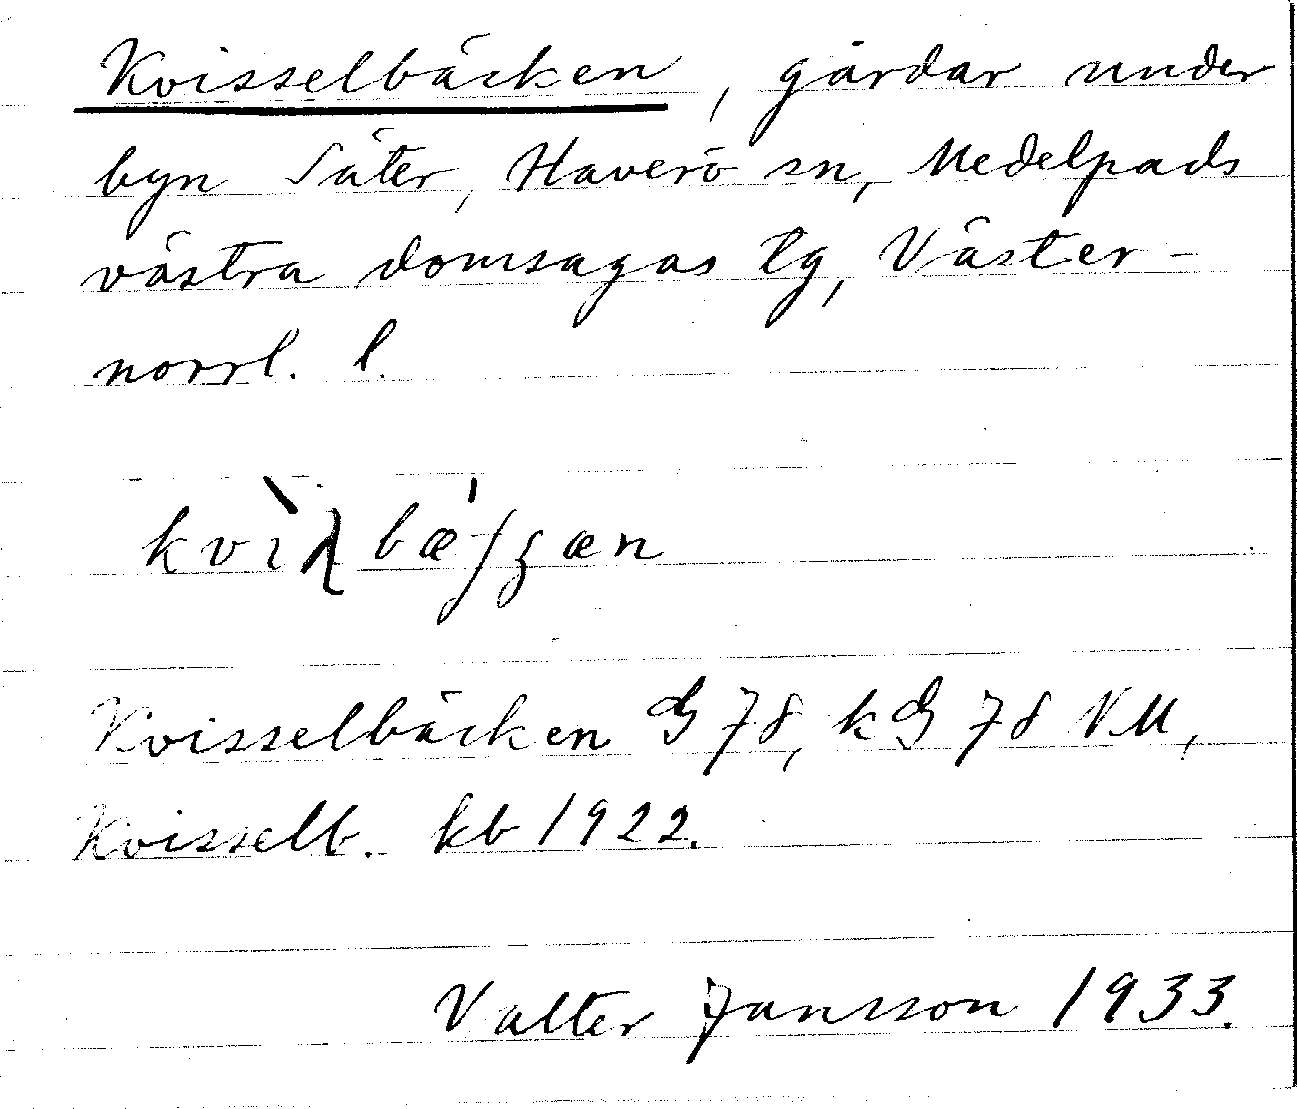 Kvisselbäcken, gårdar under
byn Säter, Haverö sn, Medelpads
västra domsagas tg, Väster-
norrl. l.
Kvisselbäcken G 78, k G 78 VM,
Kvisselb. kb 1922.
Valter Jansson 1933.